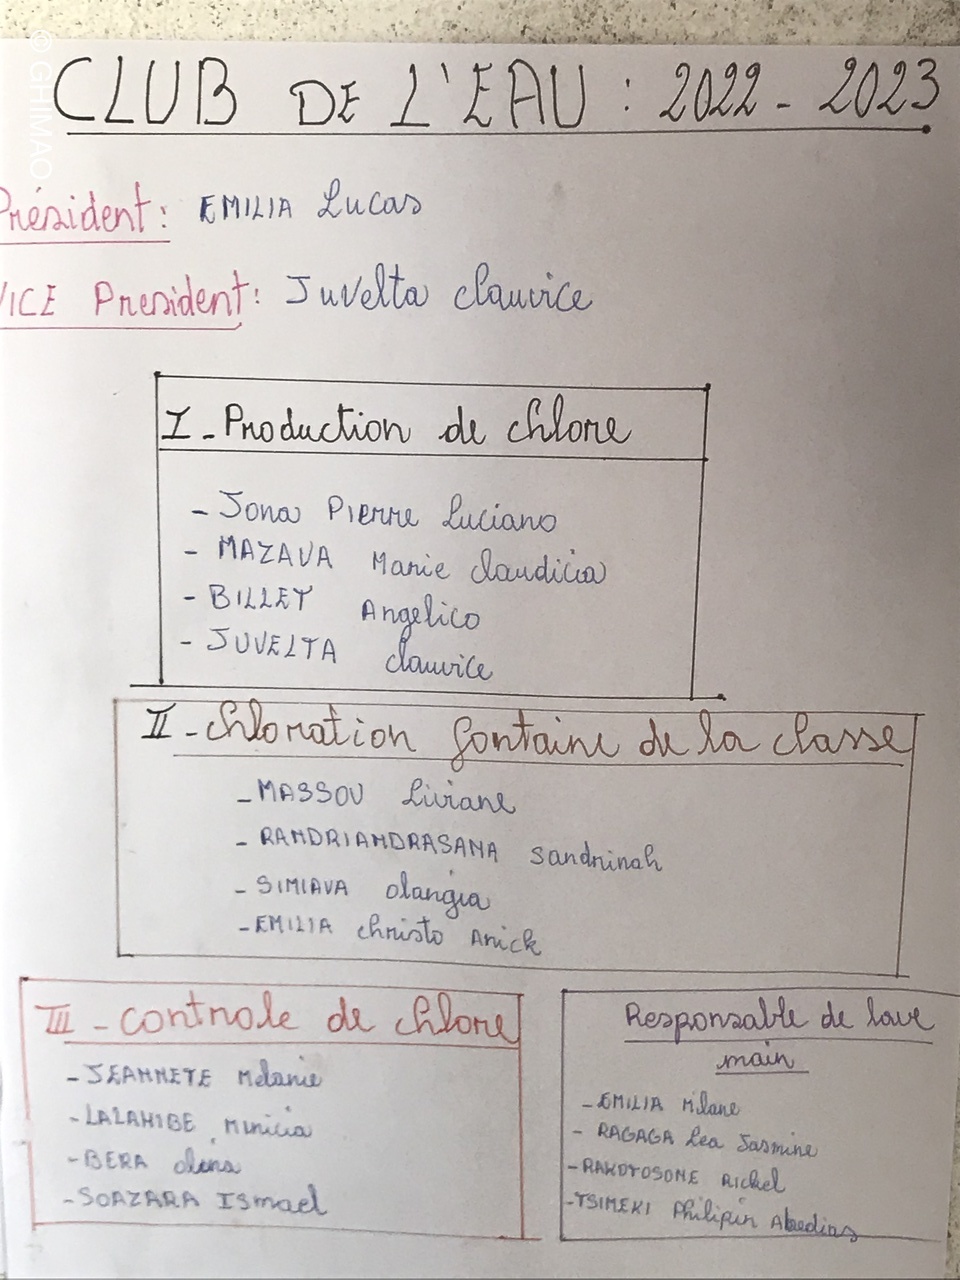 © GHIMAO
CLUB DE L'EAU : 2022 - 2023
Président : EMILIA Lucas
VICE President : Juvelta clauvice
I - Production de chlore
- Jona Pierre Luciano
- MAZAVA Marie Claudicia
- BILLET Angelico
- JUVELTA clauvice
II - Chloration fontaine de la classe
- MASSOU Liviane
- RANDRIANDRASANA Sandrinah
- SIMIAVA olangia
- EMILIA christo Anick
III - controle de chlore
- JEANNETE Mélanie
- LALAHIBE Muricia
- BERA
- SOAZARA Ismael
Responsable de lave
main
- EMILIA Milane
- RAGAGA Lea Jasmine
- RAKOTOSONE Rickel
- TSIMEKI Philipin